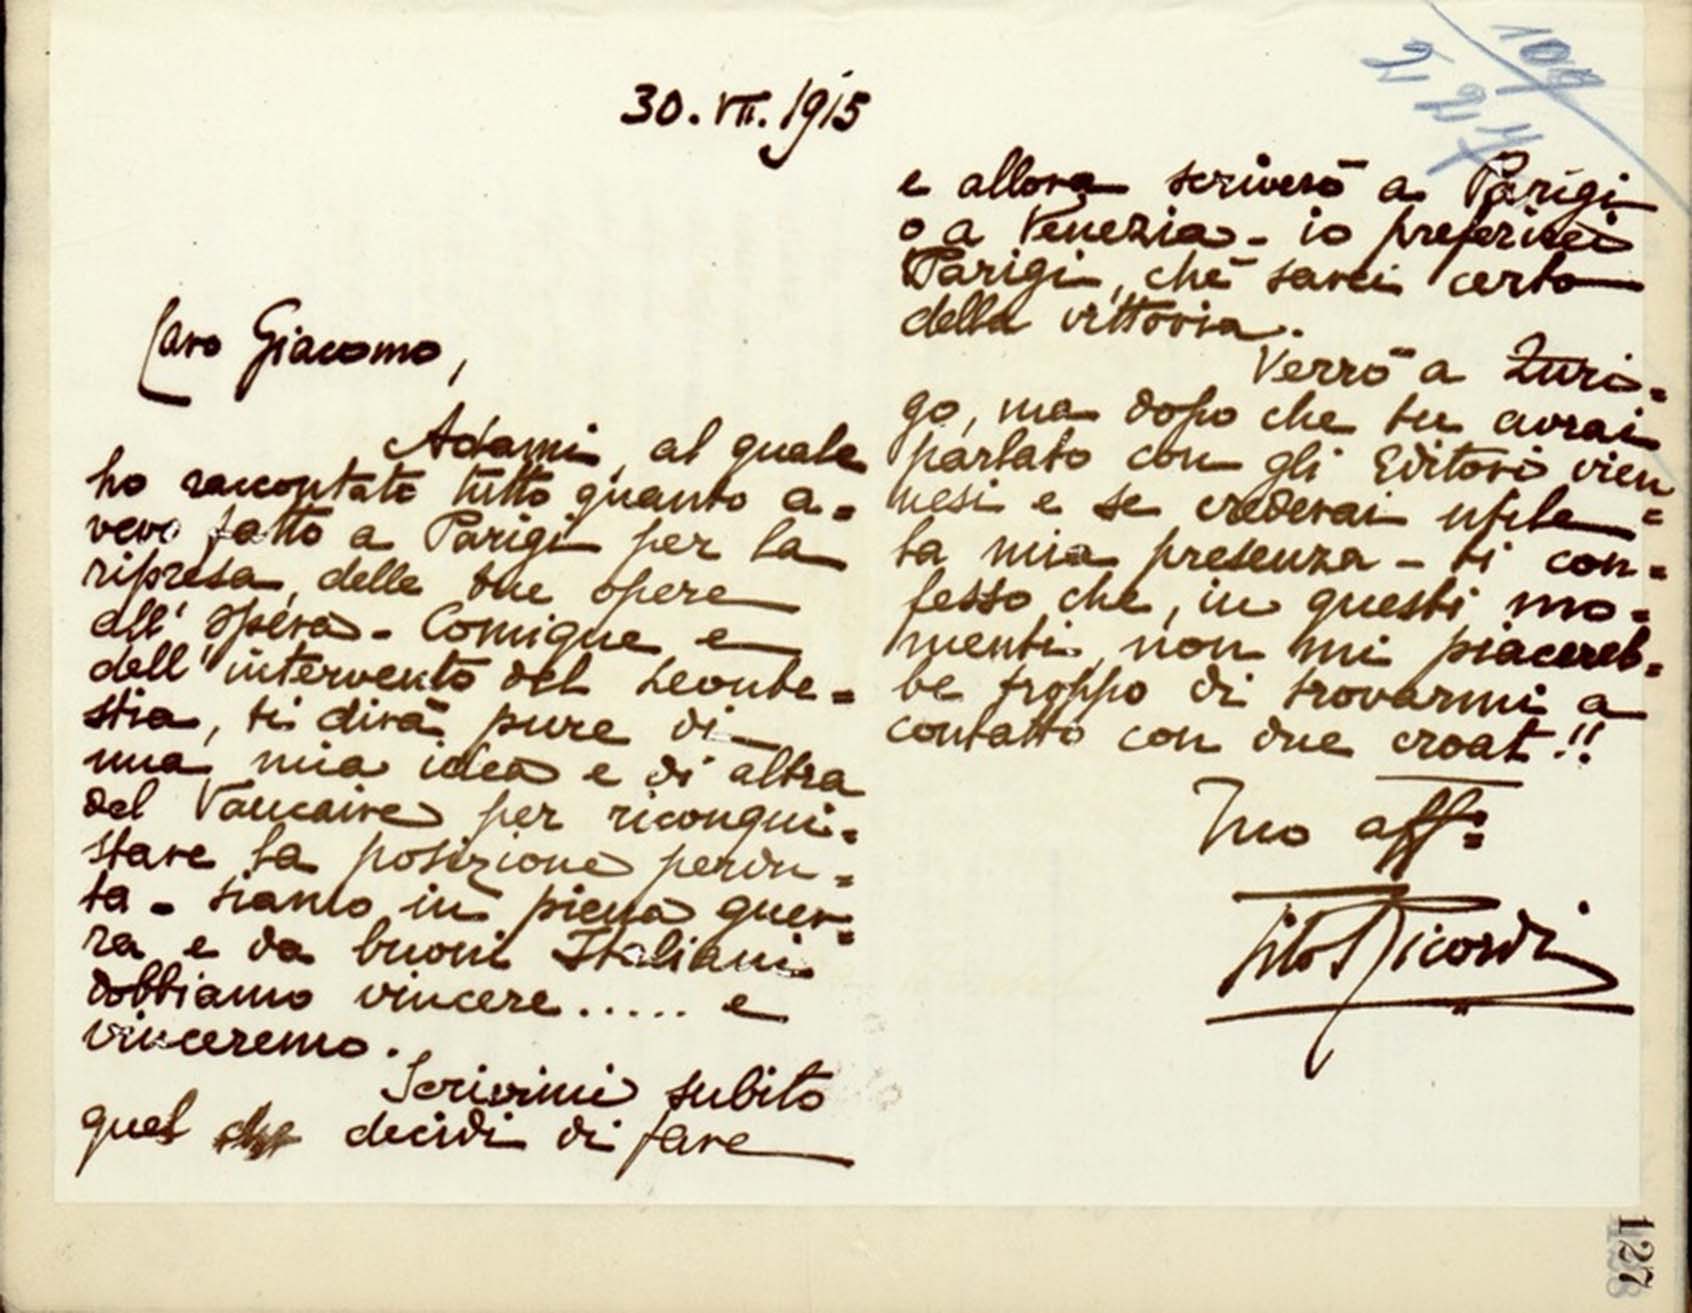 30.VII.1915
Caro Giacomo,
Adami, al quale
ho raccontato tutto quanto a=
vevo fatto a Parigi per la
ripresa delle tue opere
all'Opéra-Comique e
dell'intervento del Leonbe=
stia, ti dirà pure di
una mia idea e di altra
del Vaucaire per riconqui=
stare la posizione perdu=
ta - siamo in piena guer=
ra e da buoni Italiani
dobbiamo vincere..... e
vinceremo.
Scrivimi subito
quel che decidi di fare
e allora scriverò a Parigi
o a Venezia - io preferirei
Parigi, chè sarei certo
della vittoria.
Verrò a Zuri=
go, ma dopo che tu avrai
parlato con gli Editori vien=
nesi e se crederai utile
la mia presenza - ti con=
fesso che, in questi mo=
menti, non mi piacereb=
be troppo di trovarmi a
contatto con due croati!!
Tuo aff:
Tito Ricordi
127